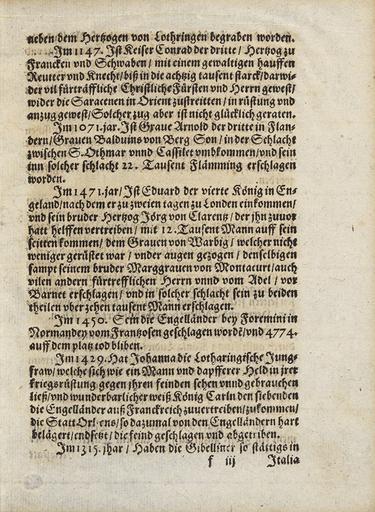 neben dem Hertzogen von Lothringen begraben worden.
Im 1147. Ist Keiser Conrad der dritte / Hertzog zu
Francken vnd Schwaben / mit einem gewaltigen hauffen
Reutter vnd Knecht / biß in die achtzig tausent starck / darwi-
der vil fürträffliche Christliche Fürsten vnd Herrn gewest /
wider die Saracenen in Orient zustreitten / in rüstung vnd
anzug gewest / Solcher zug aber ist nicht glücklich geraten.
Im 1071. jar. Ist Graue Arnold der dritte in Flan-
dern / Grauen Balduins von Berg Son / in der Schlacht
zwischen S. Othmar vnnd Cassilet vmbkommen / vnd sein
inn solcher schlacht 22. Tausent Flämming erschlagen
worden.
Im 1471. jar / Ist Eduard der vierte König in En-
geland / nach dem er zu zweien tagen zu Londen einkommen /
vnd sein bruder Hertzog Jörg von Clarentz / der jhn zuuor
hatt helffen vertreiben / mit 12. Tausent Mann auff sein
seitten kommen / dem Grauen von Warbig / welcher nicht
weniger gerüstet war / vnder augen gezogen / denselbigen
sampt seinem bruder Marggrauen von Montacurt / auch
vilen andern fürtrefflichen Herrn vnnd vom Adel / vor
Barnet erschlagen / vnd in solcher schlacht sein zu beiden
theilen vber zehen tausent Mann erschlagen.
Im 1450. Sein die Engelländer bey Foremini in
Normandey vom Frantzosen geschlagen wordē / vnd 4774.
auff dem platz tod bliben.
Im 1429. Hat Johanna die Lotharingische Jung-
fraw / welche sich wie ein Mann vnd dapfferer Held in jrer
kriegsrüstung gegen jhren feinden sehen vnnd gebrauchen
ließ / vnd wunderbarlicher weiß König Carln den siebenden
die Engelländer auß Franckreich zuuertreiben / zukommen /
die Statt Orliens / so dazumal von den Engelländern hart
belägert / endsetzt / die feind geschlagen vnd abgetriben.
Im 1315. jhar / Haben die Gibelliner so stättigs in
f iij Italia